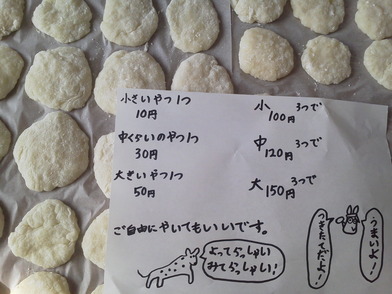 小さいやつ1つ
10円
中くらいのやつ1つ
30円
大きいやつ1つ
50円
小 3つで
100円
中 3つで
120円
大 3つで
150円
ご自由にやいてもいいです。
よってらっしゃい
みてらっしゃい!
つきたてだよ!
うまいよ!